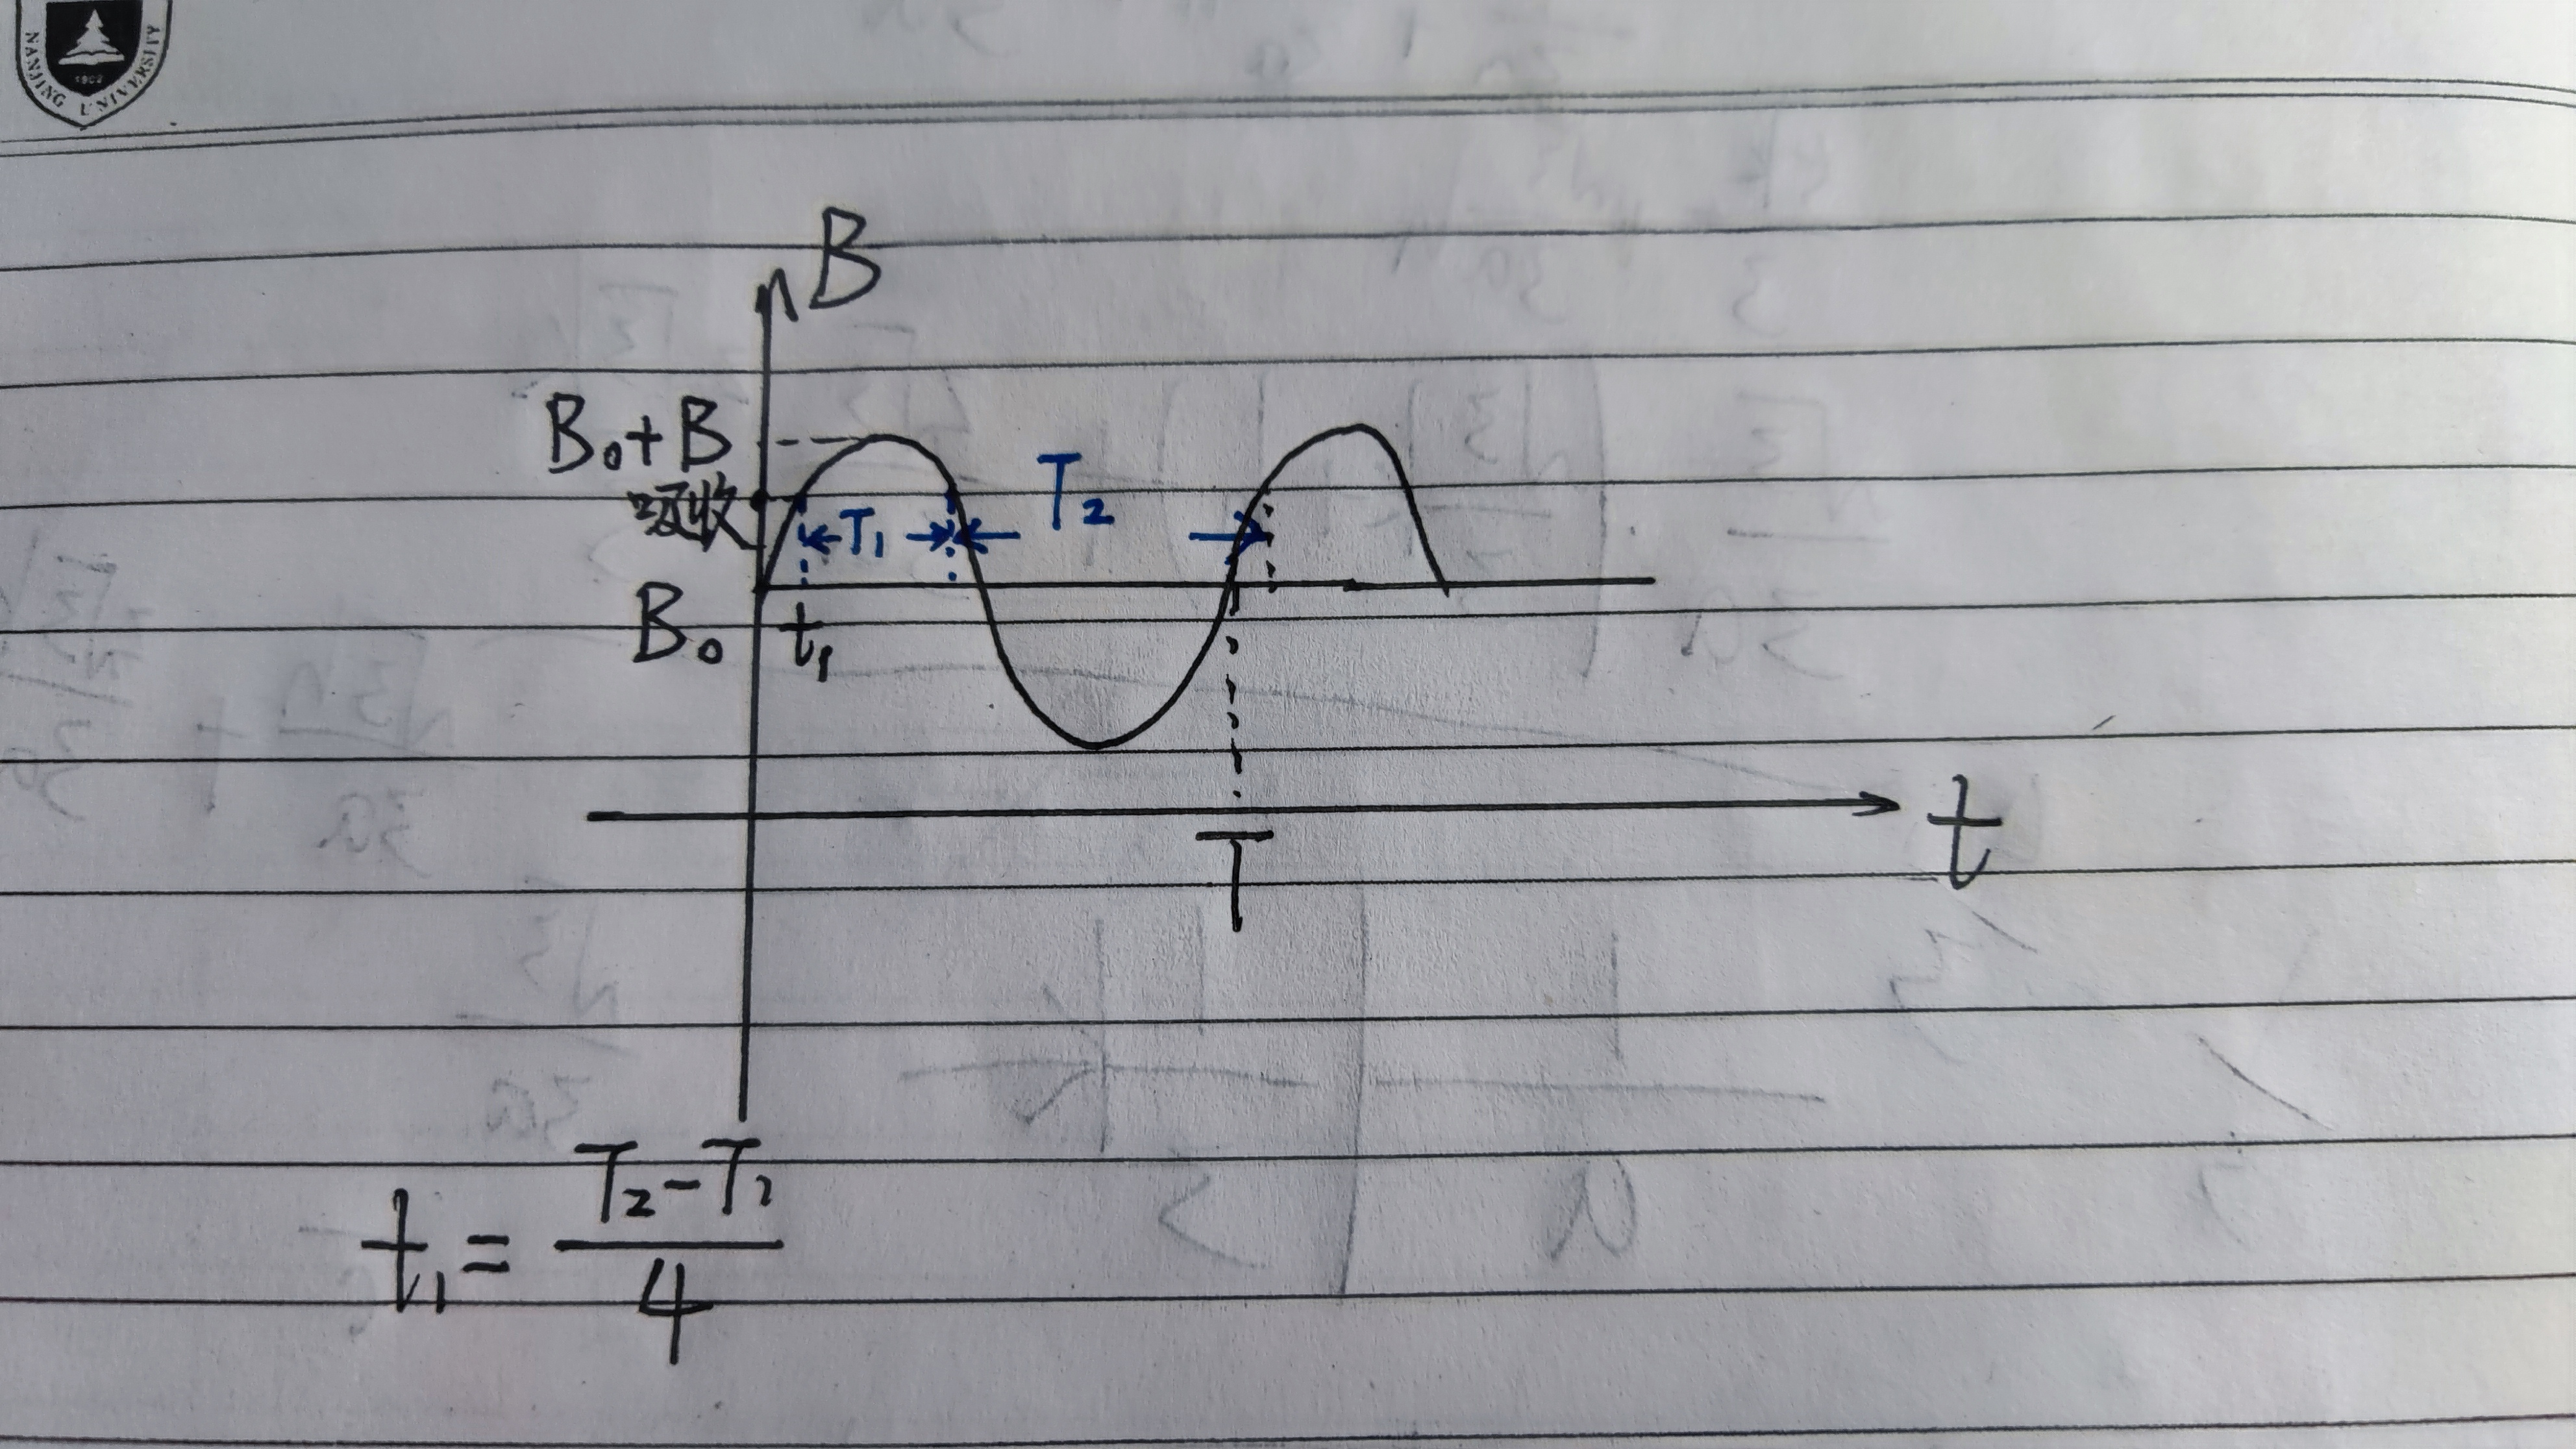 NANJING UNIVERSITY
1902
B
B₀+B
吸收
T₁
T₂
B₀
t₁
t
T
t₁ = (T₂-T₁)/4